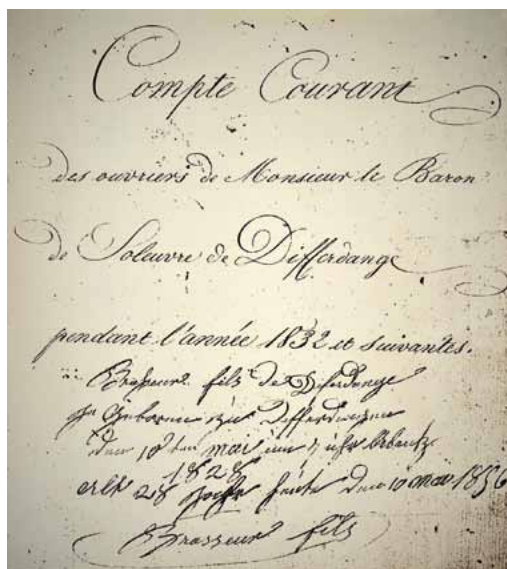 Compte Courant
des ouvriers de Monsieur le Baron
de Soleuvre de Differdange
pendant l'année 1832 et suivantes.
Brasseur fils de Differdange
Geboren zu Differdingen
den 10ten mai um 7 uhr Abents
1828
alt 28 Jahr heute den 10 mai 1856
Brasseur fils